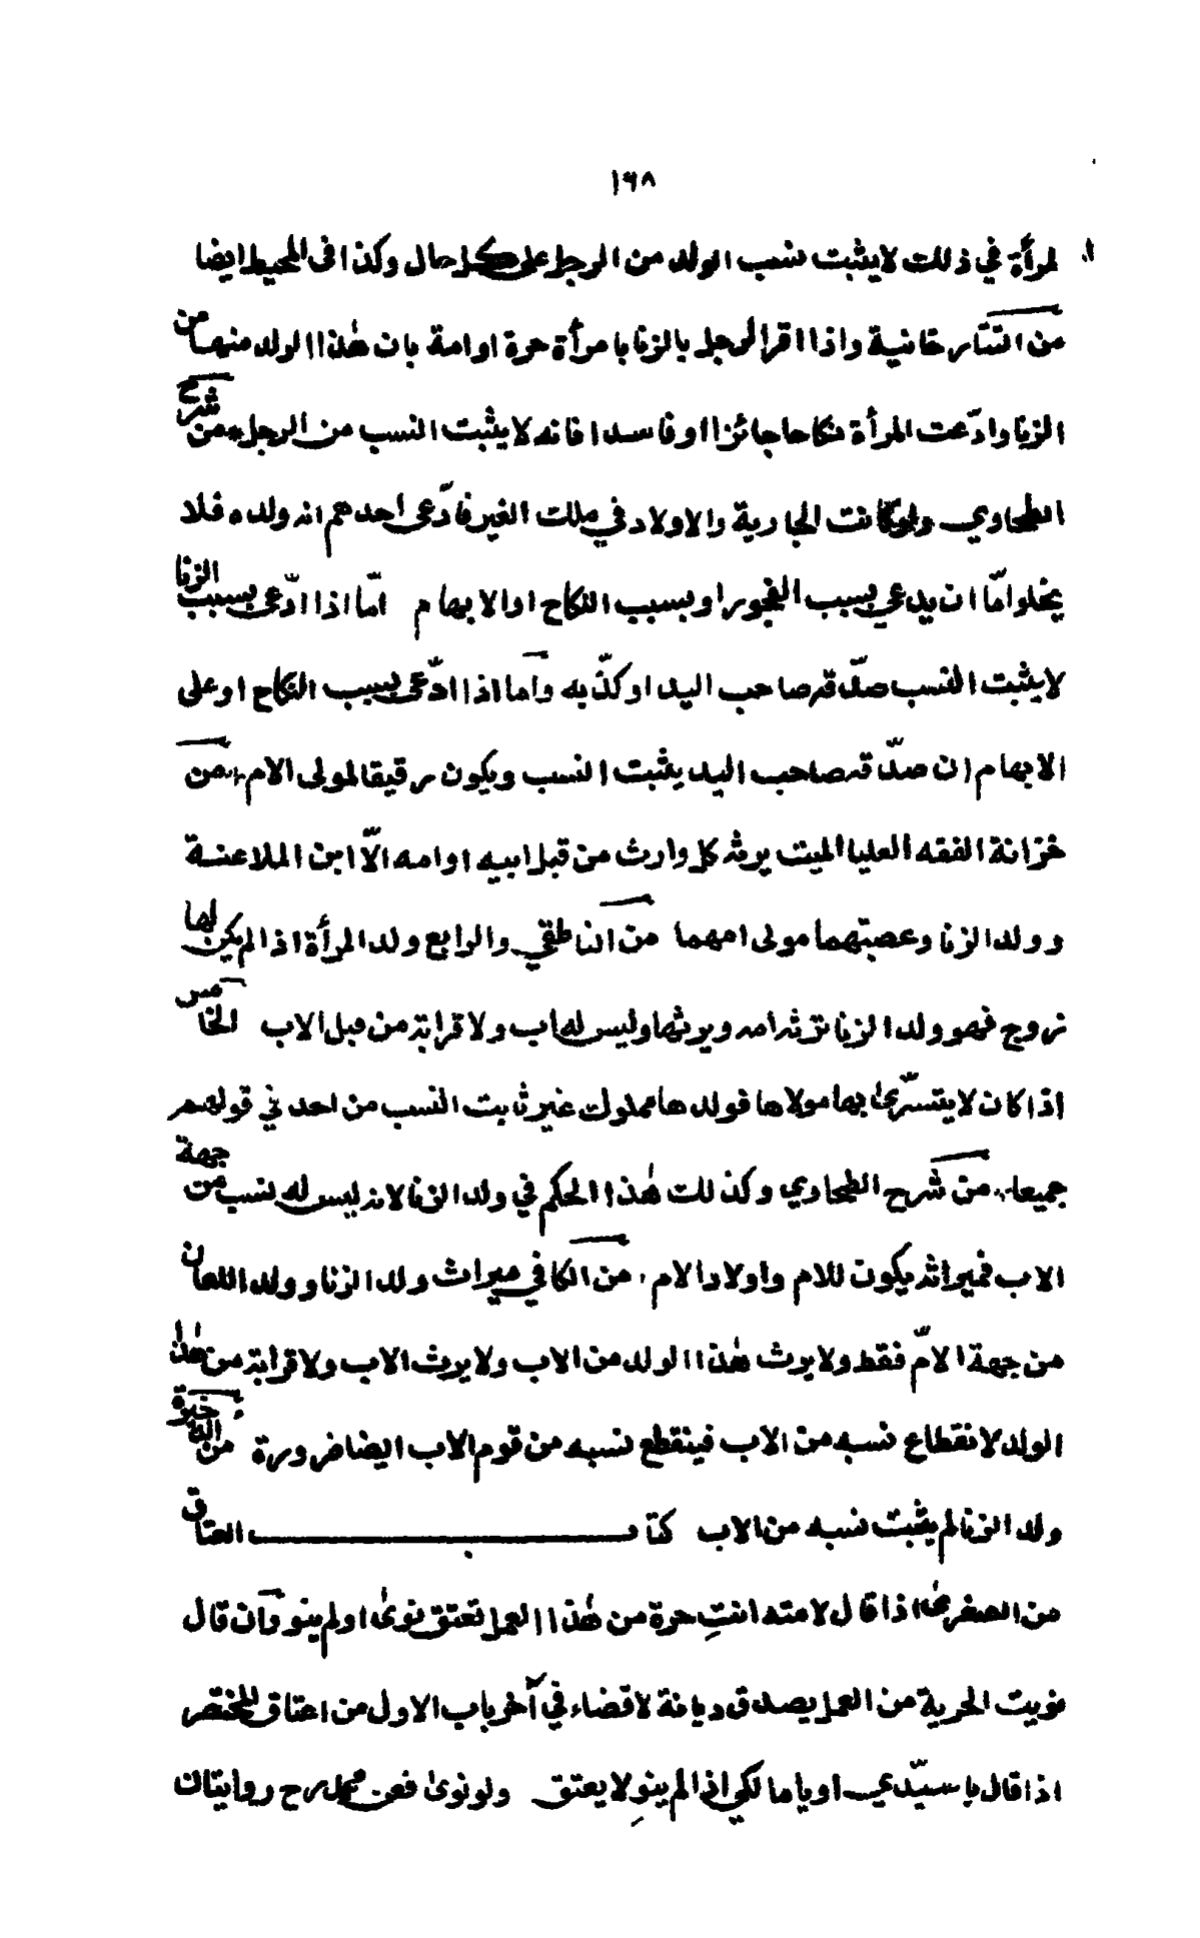 ١٦٨
المرأة في ذلك لا يثبت نسب الولد من الرجل على كل حال وكذا فى المحيط ايضا
من التتارخانية واذا اقر الرجل بالزنا بامرأة حرة او امة بان هٰذا الولد منها من
الزنا وادّعت المرأة نكاحا جائزا او فاسدا فانه لا يثبت النسب من الرجل من شرح
الطحاوي ولو كانت الجارية والاولاد في ملك الغير فادّعى احدهم انه ولده فلا
يخلو امّا ان يدعي بسبب الفجور او بسبب النكاح او الابهام امّا اذا ادّعى بسبب الزنا
لا يثبت النسب صدّقه صاحب اليد او كذّبه وامّا اذا ادّعى بسبب النكاح او على
الابهام ان صدّقه صاحب اليد يثبت النسب ويكون رقيقا لمولى الام من
خزانة الفقه العليا الميت يرثه كل وارث من قبل ابيه او امه الّا ابن الملاعنة
وولد الزنا وعصبتهما مولى امهما من الناطقي والرابع ولد المرأة اذا لم يكن لها
زوج فهو ولد الزنا ترثه امه ويرثها وليس له اب ولا قرابة من قبل الاب الخامس
اذا كان لا يتسرّى بها مولاها فولدها مملوك غير ثابت النسب من احد في قولهم
جميعا من شرح الطحاوي وكذلك هٰذا الحكم في ولد الزنا لانه ليس له نسب من جهة
الاب فميراثه يكون للام واولاد الام من الكافي ميراث ولد الزنا وولد اللعان
من جهة الامّ فقط ولا يرث هٰذا الولد من الاب ولا يرث الاب ولا قرابة من هٰذا
الولد لانقطاع نسبه من الاب فينقطع نسبه من قوم الاب ايضا ضرورة من الذخيرة
ولد الزنا لم يثبت نسبه من الاب كتاب العتاق
من الصغرى اذا قال لامته انتِ حرة من هٰذا العمل تعتق نوىٰ او لم ينو وان قال
نويت الحرية من العمل يصدق ديانة لا قضاء في آخر باب الاول من اعتاق المختصر
اذا قال يا سيّدي او يا مالكي ان لم ينوِ لا يعتق ولو نوىٰ فعن محمد رح روايتان